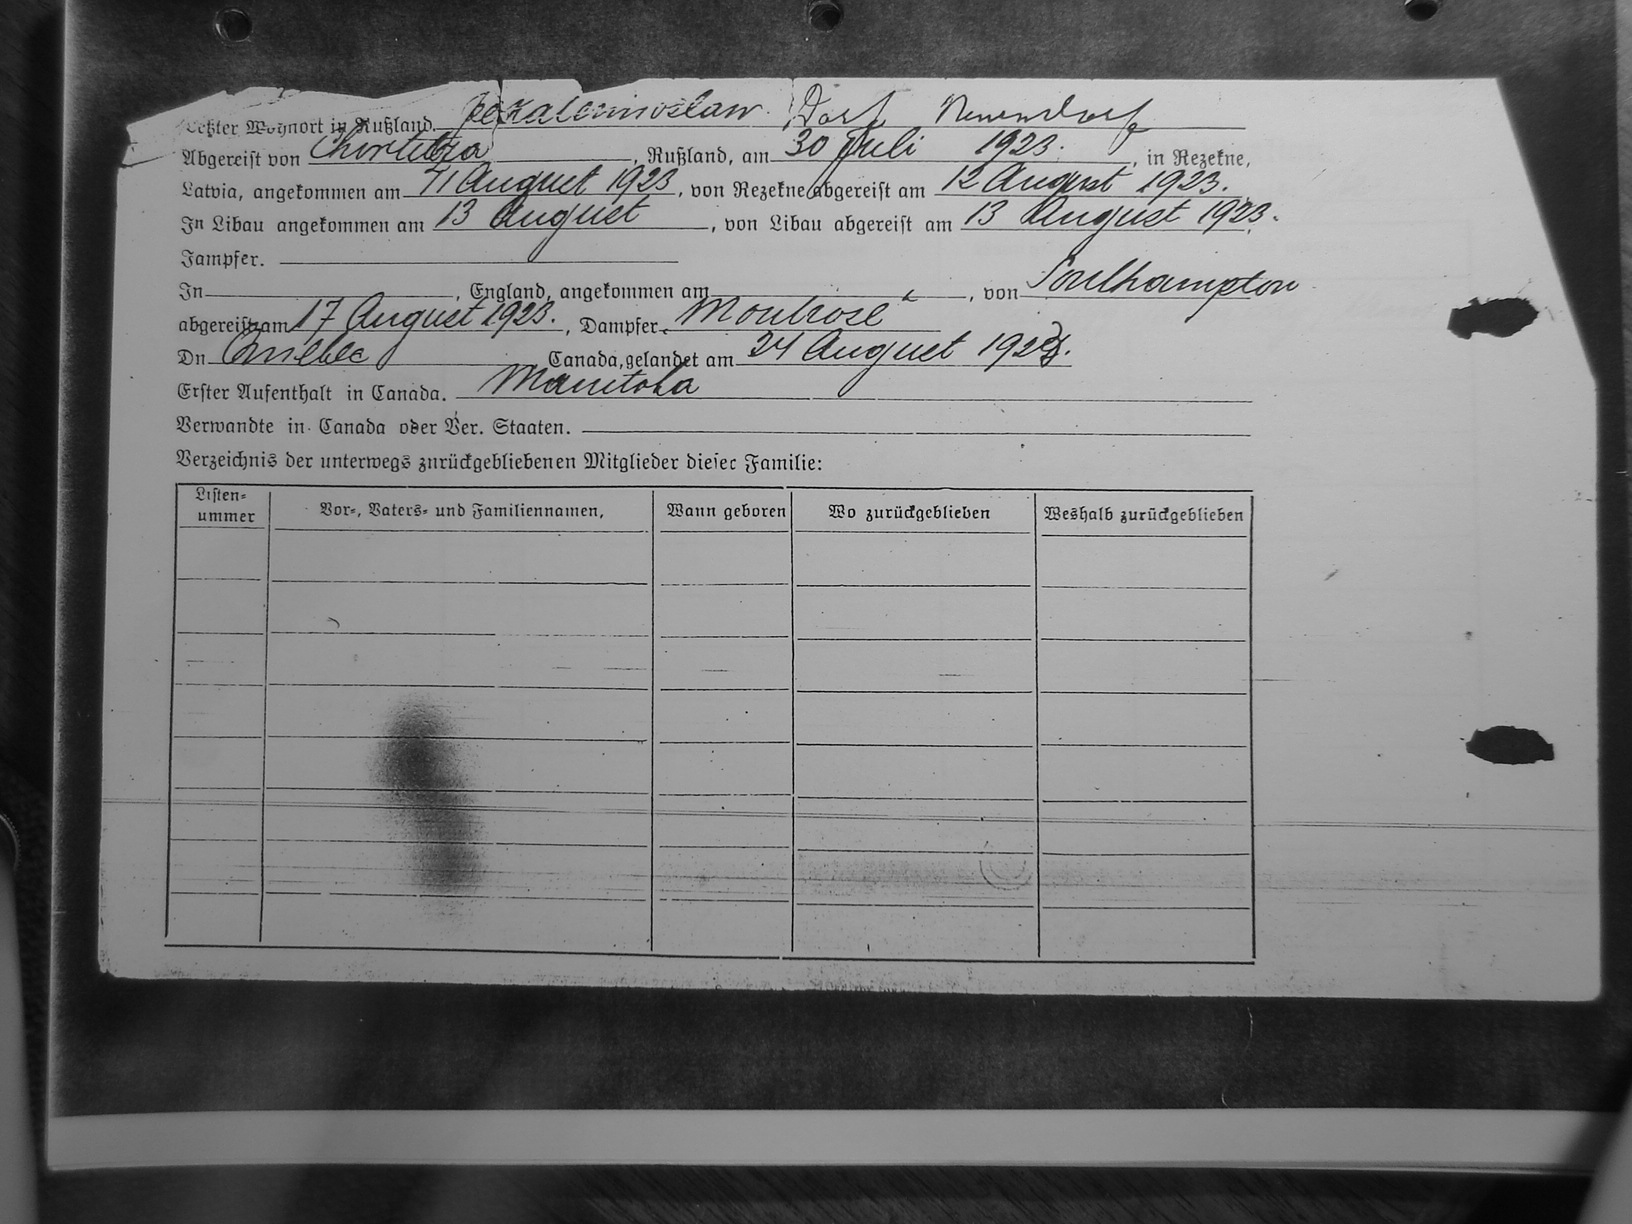 Letzter Wohnort in Rußland Dorf Neuendorf
Abgereist von Chortitza, Rußland, am 30 Juli 1923., in Rezekne,
Latvia, angekommen am 11 August 1923, von Rezekne abgereist am 12 August 1923.
In Libau angekommen am 13 August, von Libau abgereist am 13 August 1923.
Jampfer.
In, England, angekommen am, von Southampton
abgereist am 17 August 1923., Dampfer. Montrose
Dn Quebec Canada, gelandet am 24 August 1923.
Erster Aufenthalt in Canada. Manitoba
Verwandte in Canada oder Ver. Staaten.
Verzeichnis der unterwegs zurückgebliebenen Mitglieder dieser Familie:
Listen=
ummer Vor=, Vaters= und Familiennamen, Wann geboren Wo zurückgeblieben Weshalb zurückgeblieben